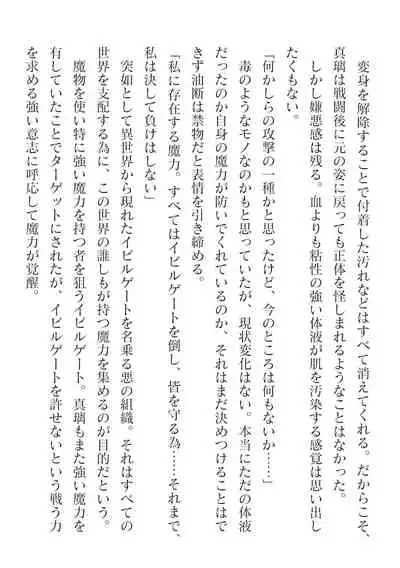 変身を解除することで付着した汚れなどはすべて消えてくれる。だからこそ、
真璃は戦闘後に元の姿に戻っても正体を怪しまれるようなことはなかった。
しかし嫌悪感は残る。血よりも粘性の強い体液が肌を汚染する感覚は思い出し
たくもない。
「何かしらの攻撃の一種かと思ったけど、今のところは何もないか……」
毒のようなモノなのかもと思っていたが、現状変化はない。本当にただの体液
だったのか自身の魔力が防いでくれているのか、それはまだ決めつけることはで
きず油断は禁物だと表情を引き締める。
「私に存在する魔力。すべてはイビルゲートを倒し、皆を守る為……それまで、
私は決して負けはしない」
突如として異世界から現れたイビルゲートを名乗る悪の組織。それはすべての
世界を支配する為に、この世界の誰しもが持つ魔力を集めるのが目的だという。
魔物を使い特に強い魔力を持つ者を狙うイビルゲート。真璃もまた強い魔力を
有していたことでターゲットにされたが、イビルゲートを許せないという戦う力
を求める強い意志に呼応して魔力が覚醒。